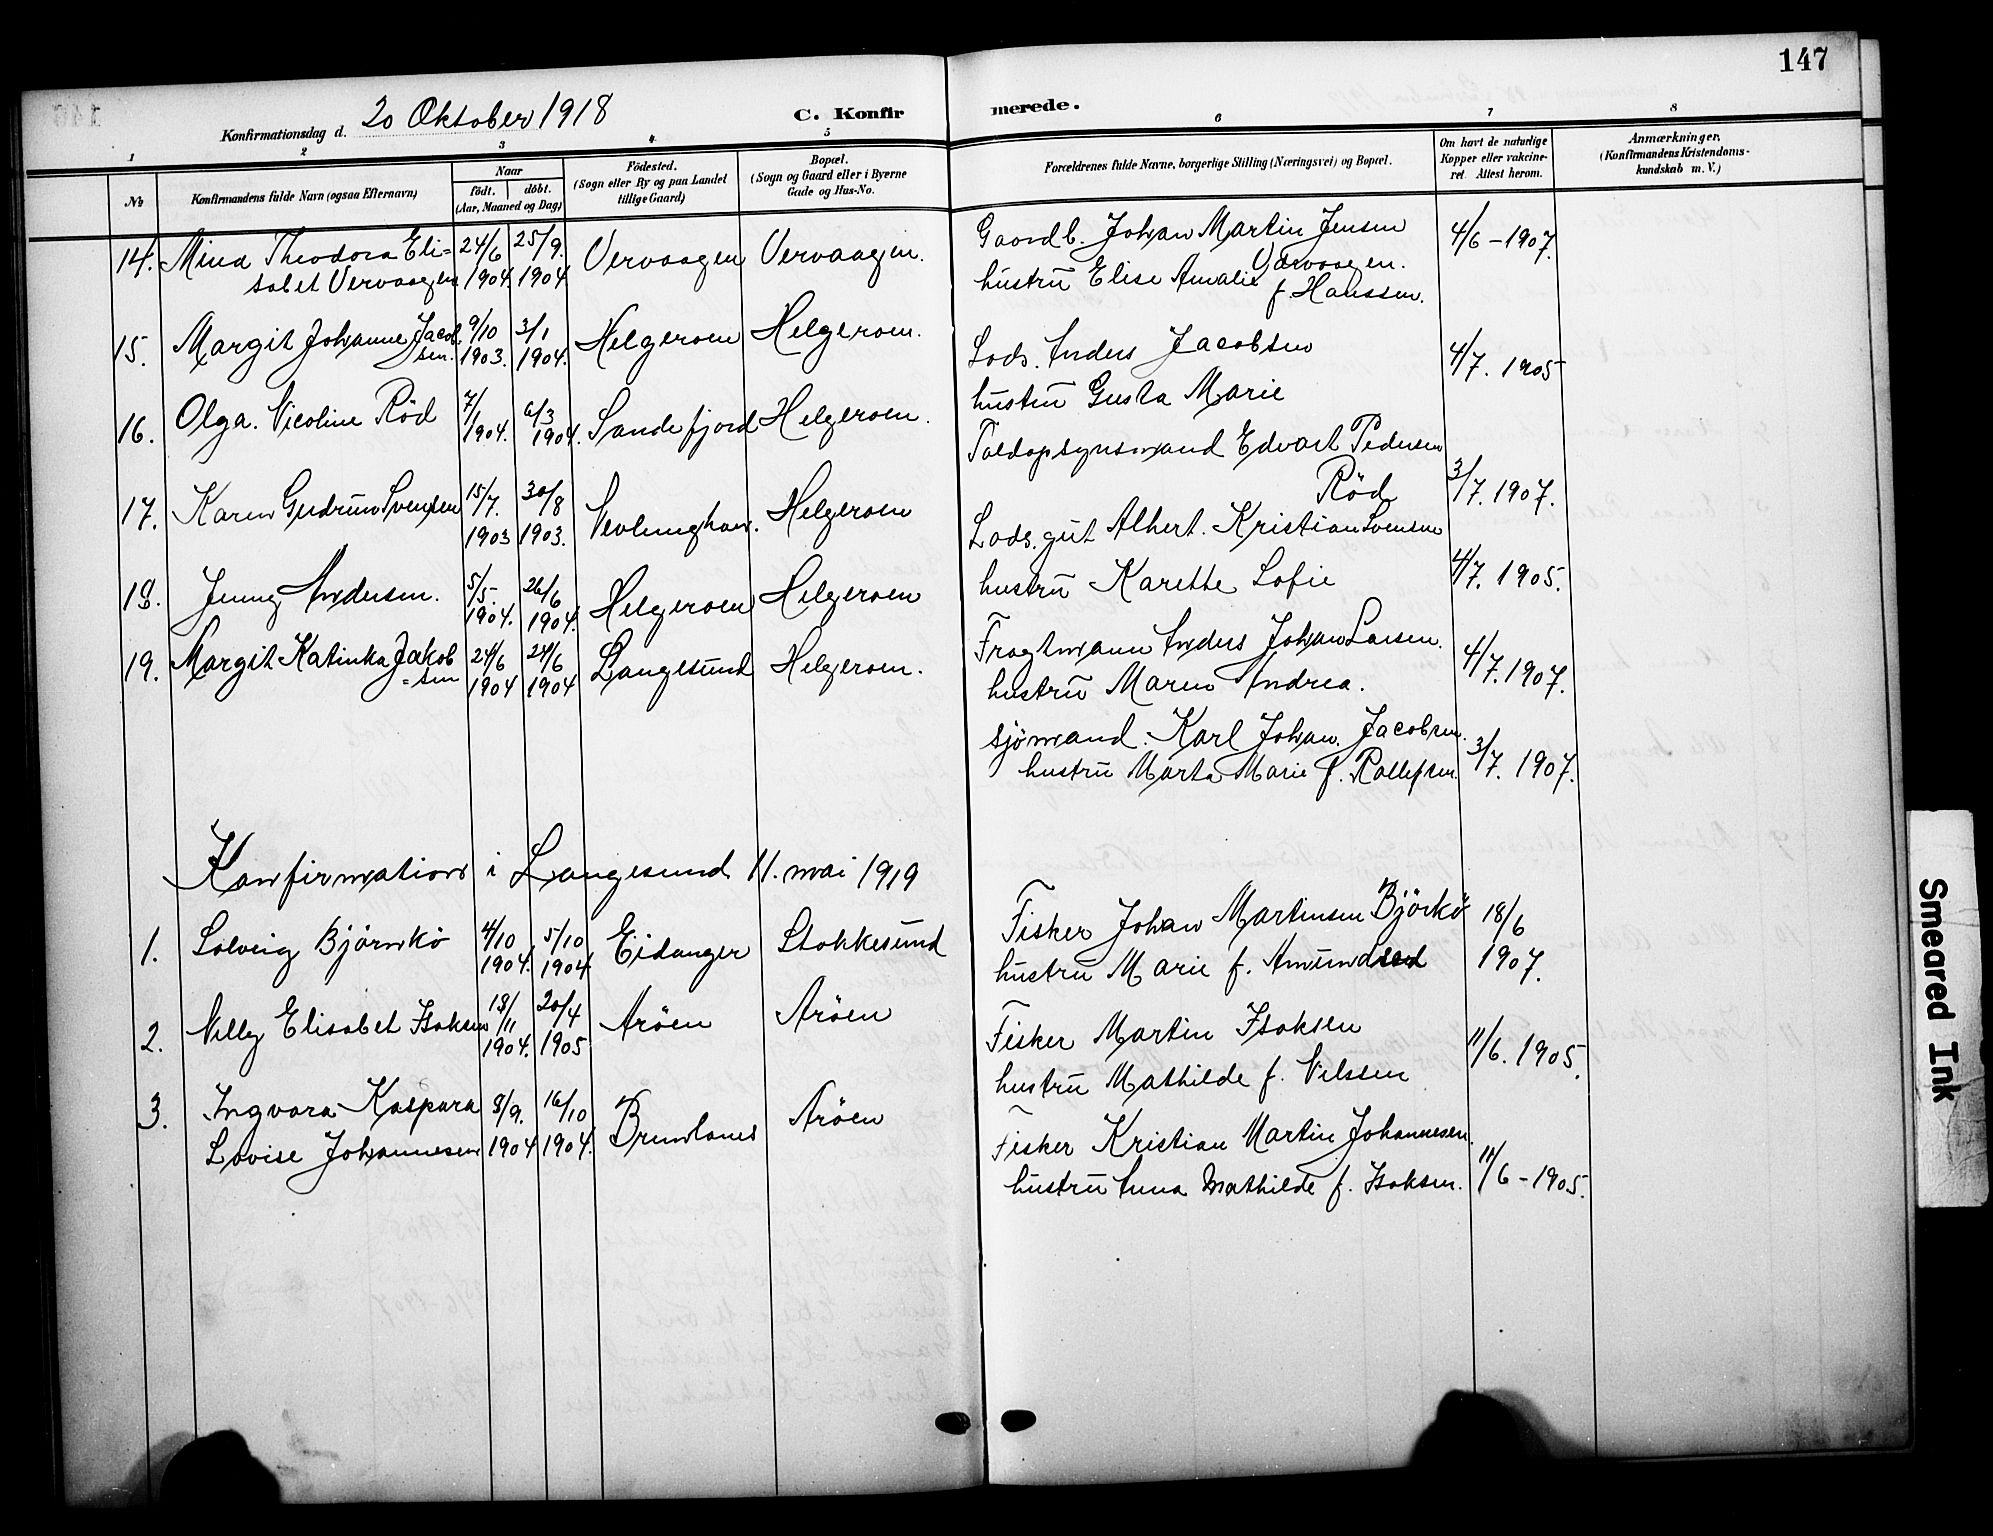 147
Konfirmationsdag d. 20 Oktober 1918
C. Konfirmerede.
1 2 3 4 5 6 7 8
No
Konfirmandens fulde Navn (ogsaa Efternavn)
Naar
födt. döbt.
(Aar, Maaned og Dag)
Födested.
(Sogn eller By og paa Landet
tillige Gaard)
Bopæl.
(Sogn og Gaard eller i Byerne
Gade og Hus-No.
Forældrenes fulde Navne, borgerlige Stilling (Næringsvei) og Bopæl.
Om havt de naturlige
Kopper eller vakcine-
ret. Attest herom.
Anmærkninger.
(Konfirmandens Kristendoms-
kundskab m. V.)
14. Mina Theodora Eli= 24/6 25/9. Vervaagen Vervaagen. Gaardb. Johan Martin Jensen 4/6 - 1907.
sabet Vervaagen 1904. 1904 Vervaagen.
hustrū Elise Amalie f. Hanssen.
15. Margit Johanne Jacob 9/10 3/1 Helgeroen Helgeroen. Lods. Anders Jacobsen 4/7. 1905
sen. 1903. 1904. hustrū Gusta Marie
16. Olga. Nicoline Röd 7/1 6/3 Sandefjord Helgeroen. Toldopsynsmand Edvart Pedersen
1904. 1904. Röd 3/7. 1907.
17. Karen Gudrūn Svendsen 15/7. 30/8 Nevlunghavn. Helgeroen Lods.gūt Albert. Kristian Svensen
1903 1903. hustrū Karette Sofie 4/7. 1905.
18. Jenny Andersen. 5/5. 26/6 Helgeroen Helgeroen Fragtmann Anders Johan Larsen.
1904. 1904. hustrū Maren Andrea. 4/7. 1907.
19. Margit Katinka Jakob 24/6 24/6 Langesūnd Helgeroen. sjömand. Karl Johan. Jacobsen.
=sen 1904 1904 hustrū Marta Marie f. Rollefsen. 3/7. 1907.
Konfirmation i Langesund 11. mai 1919
1. Solveig Björnkö 4/10 5/10 Eidanger Stokkesūnd Fisker Johan Martinsen Björkö 18/6
1904. 1904. hustrū Marie f. Amūndsen 1907.
2. Nelly Elisabet Isaksen 18/11 20/4 Aröen Aröen Fisker Martin Isaksen 11/6. 1905.
1904. 1905 hustrū Mathilde f. Nilssen
3. Ingvora Kaspara 8/9. 16/10 Brunlanes Aröen Fisker Kristian Martin Johannesen.
Lovise Johannesen 1904 1904. hustrū Anna Mathilde f. Isaksen. 11/6 - 1905.
Smeared Ink